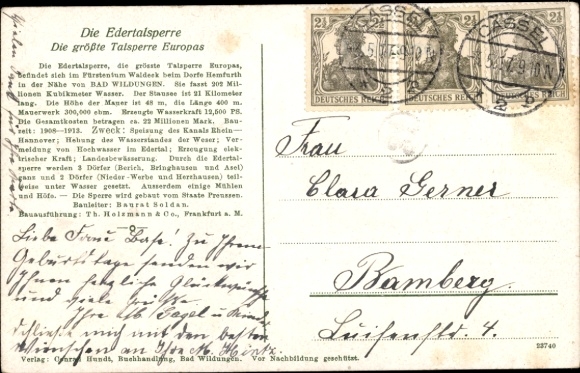 Die Edertalsperre
Die größte Talsperre Europas
Die Edertalsperre, die grösste Talsperre Europas,
befindet sich im Fürstentum Waldeck beim Dorfe Hemfurth
in der Nähe von BAD WILDUNGEN. Sie fasst 202 Mil-
lionen Kubikmeter Wasser. Der Stausee ist 21 Kilometer
lang. Die Höhe der Mauer ist 48 m, die Länge 400 m.
Mauerwerk 300,000 cbm. Erzeugte Wasserkraft 12,500 PS.
Die Gesamtkosten betragen ca. 22 Millionen Mark. Bau-
zeit: 1908-1913. Zweck: Speisung des Kanals Rhein—
Hannover; Hebung des Wasserstandes der Weser; Ver-
meidung von Hochwasser im Edertal; Erzeugung elek-
trischer Kraft; Landesbewässerung. Durch die Edertal-
sperre werden 3 Dörfer (Berich, Bringhausen und Asel)
ganz und 2 Dörfer (Nieder-Werbe und Herzhausen) teil-
weise unter Wasser gesetzt. Ausserdem einige Mühlen
und Höfe. — Die Sperre wird gebaut vom Staate Preussen.
Bauleiter: Baurat Soldan.
Bauausführung: Th. Holzmann & Co., Frankfurt a. M.
Liebe Frau Base! Zu Ihrem
Geburtstage senden wir
Ihnen herzliche Glückwünsche
und viele Grüße
Ihre
schließe mich mit den besten
Wünschen an Ihre M. Hintz.
Verlag: Conrad Hundt, Buchhandlung, Bad Wildungen. Vor Nachbildung geschützt.
2½ 2½ 2½
DEUTSCHES REICH DEUTSCHES REICH DEUTSCHES REICH
CASSEL CASSEL
Frau
Clara Gerner
Bamberg.
Luisenstr. 4.
23740